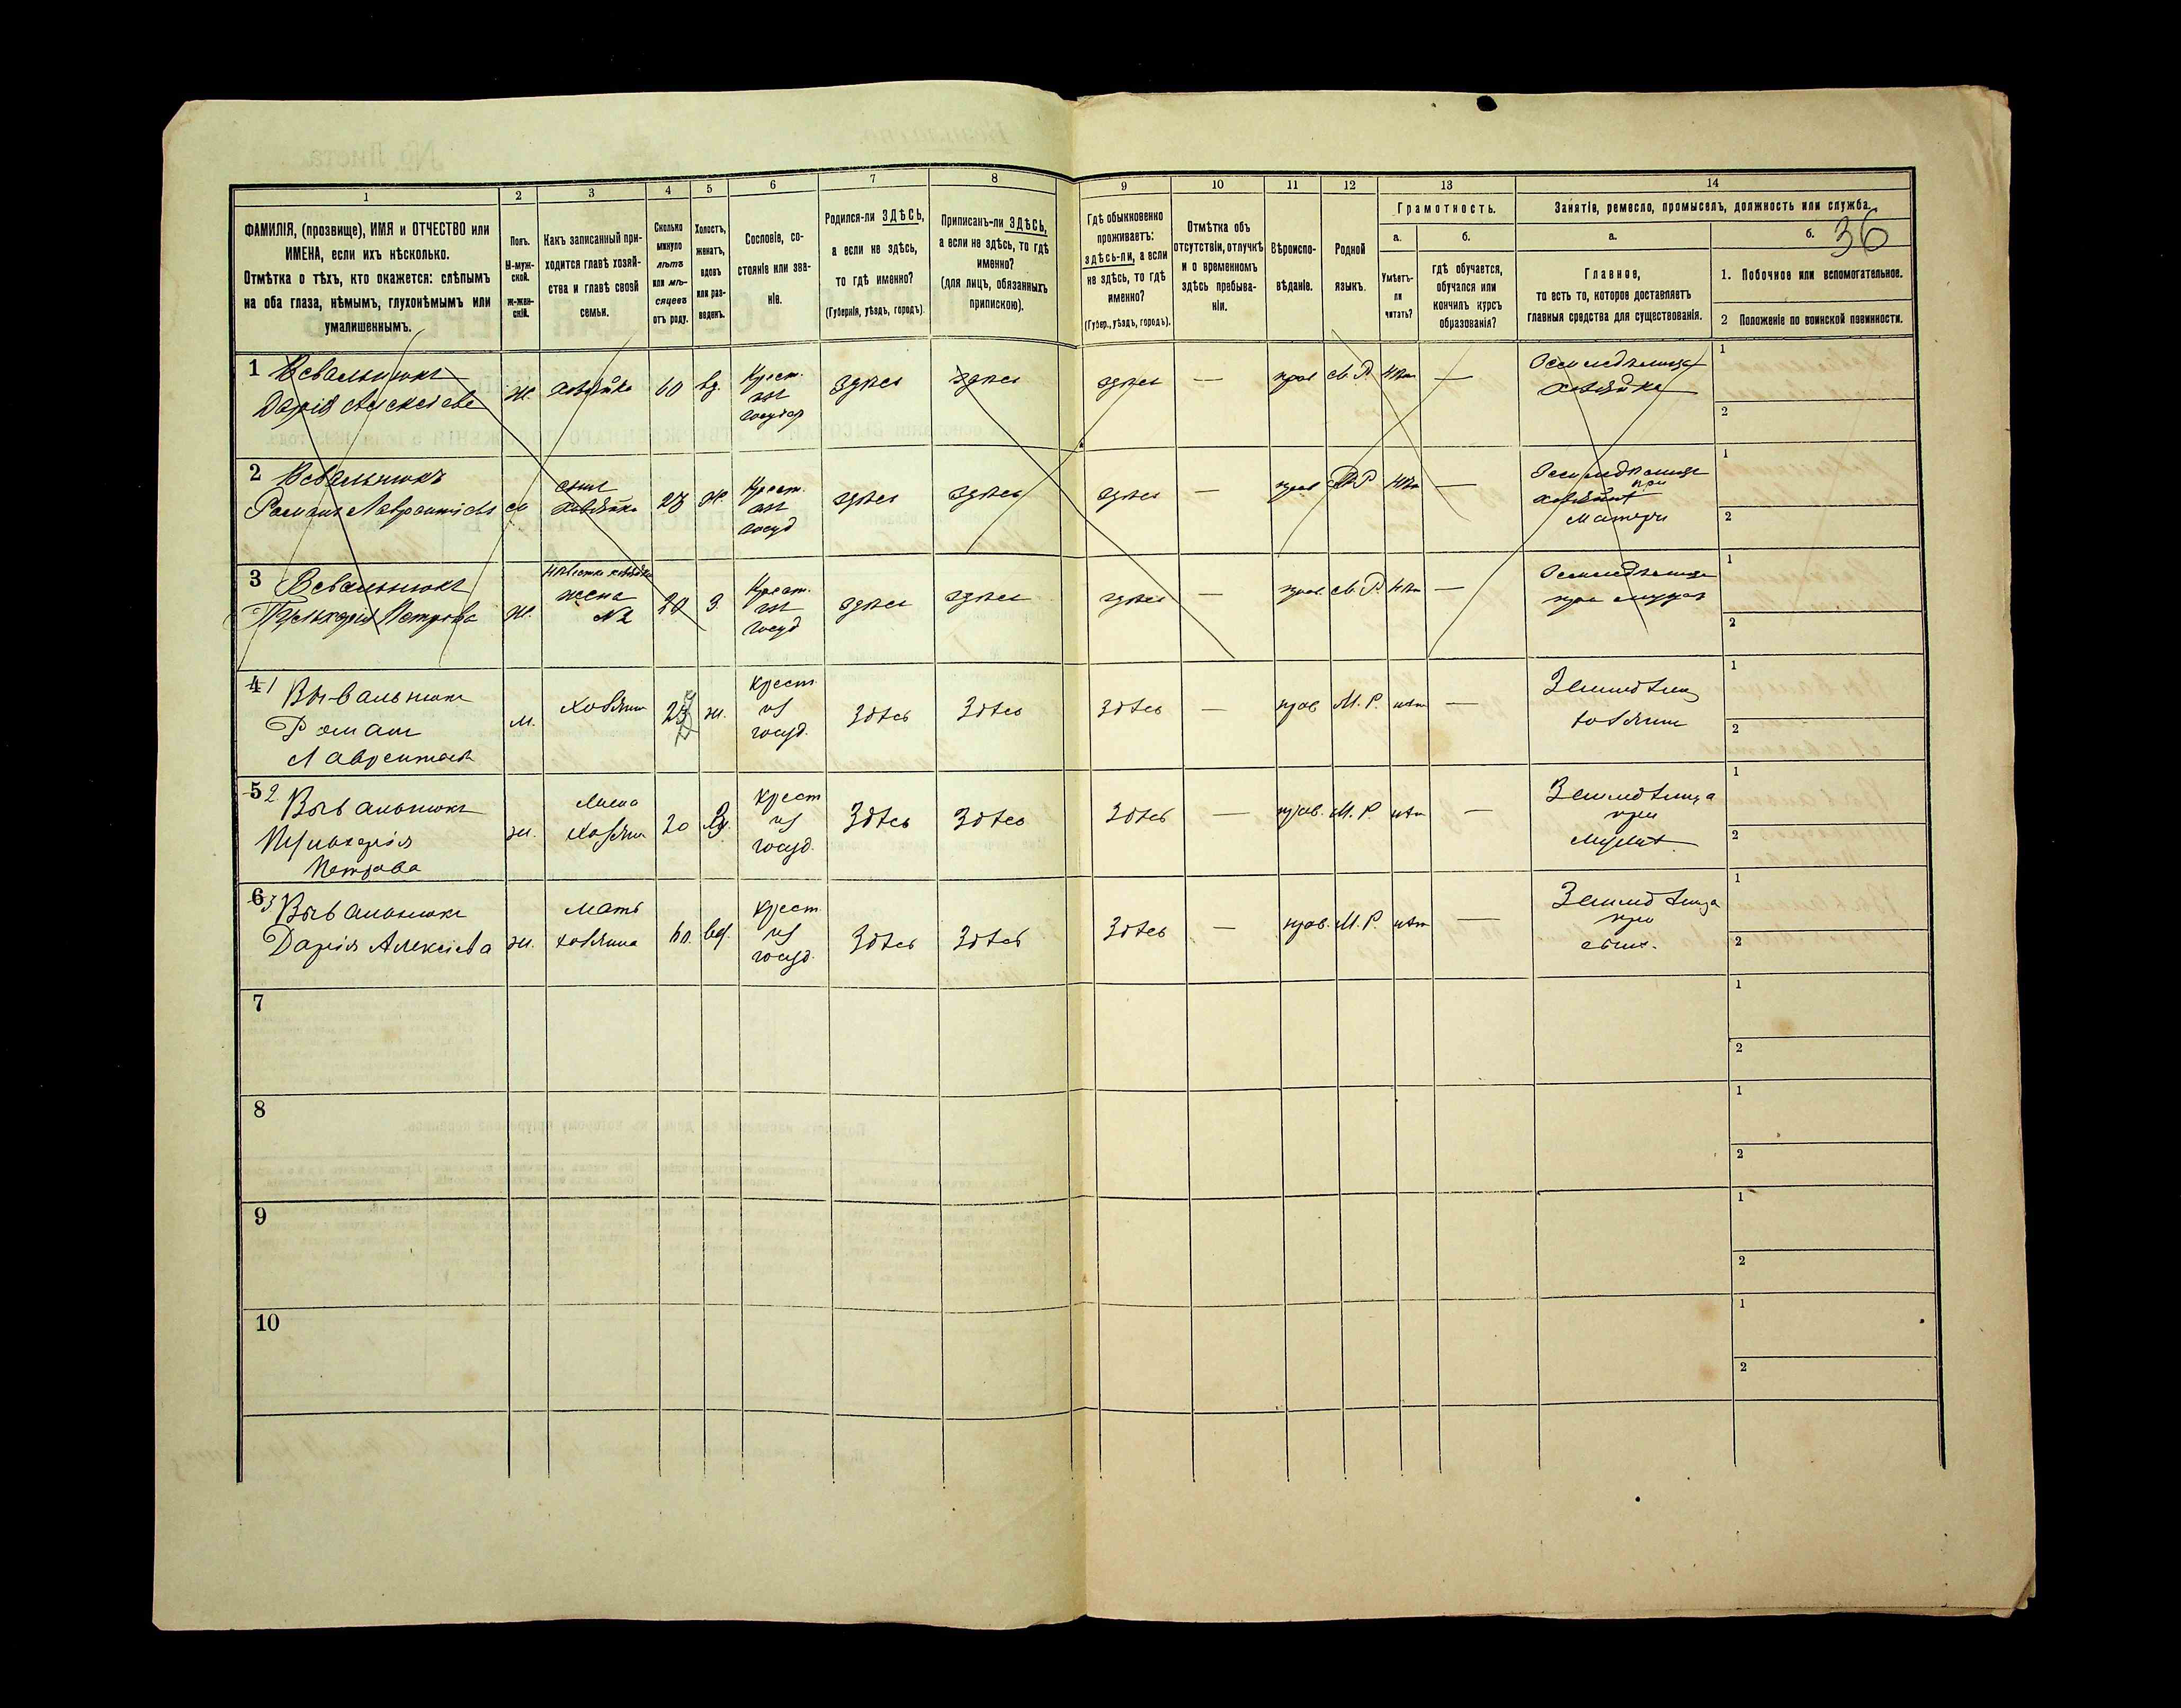 36
1
2
3
4
5
6
7
8
9
10
11
12
13
14
ФАМИЛІЯ, (прозвище), ИМЯ и ОТЧЕСТВО или
ИМЕНА, если ихъ нѣсколько.
Отмѣтка о тѣхъ, кто окажется: слѣпымъ
на оба глаза, нѣмымъ, глухонѣмымъ или
умалишеннымъ.
Полъ.
М-муж-
ской.
Ж-жен-
скій.
Какъ записанный при-
ходится главѣ хозяй-
ства и главѣ своей
семьи.
Сколько
минуло
лѣтъ
или мѣ-
сяцевъ
отъ роду.
Холостъ,
женатъ,
вдовъ
или раз-
веденъ.
Сословіе, со-
стояніе или зва-
ніе.
Родился-ли ЗДѢСЬ,
а если не здѣсь,
то гдѣ именно?
(Губернія, уѣздъ, городъ).
Приписанъ-ли ЗДѢСЬ,
а если не здѣсь, то гдѣ
именно?
(для лицъ, обязанныхъ
припискою).
Гдѣ обыкновенно
проживаетъ:
здѣсь-ли, а если
не здѣсь, то гдѣ
именно?
(Губер., уѣздъ, городъ).
Отмѣтка объ
отсутствіи, отлучкѣ
и о временномъ
здѣсь пребыва-
ніи.
Вѣроиспо-
вѣданіе.
Родной
языкъ.
Грамотность.
а.
Умѣетъ-
ли
читать?
б.
гдѣ обучается,
обучался или
кончилъ курсъ
образованія?
Занятіе, ремесло, промыселъ, должность или служба.
а.
Главное,
то есть то, которое доставляетъ
главныя средства для существованія.
б.
1. Побочное или вспомогательное.
2 Положеніе по воинской повинности.
1
Дарія Алексіева
ж.
хозяйка
60
вд.
Крест.
из
государ
здѣсь
здѣсь
здѣсь
—
прав
М. Р.
нѣт
—
хозяйка
1
2
2
Роман Лаврентіев
м
сын
хозяйки
Крест.
из
госуд
здѣсь
здѣсь
здѣсь
—
прав
М. Р.
нѣт
—
при
матери
1
2
3
Пульхерія Петрова
ж.
жена
№2
20
З.
Крест.
из
госуд
здѣсь
здѣсь
здѣсь
—
прав
М. Р.
нѣт
—
при мужѣ
1
2
4 1
Вывальнюк
Роман
Лаврентіев
м.
хозяин
ж.
крест
из
госуд.
Здѣсь
Здѣсь
Здѣсь
—
прав
М. Р.
нѣт
—
хозяин
1
2
5 2
Вывальнюк
Пульхерія
Петрова
ж.
жена
хозяин
20
З.
крест
из
госуд.
Здѣсь
Здѣсь
Здѣсь
—
прав.
М. Р.
нѣт
—
при
мужѣ
1
2
6 3
Вывальнюк
Дарія Алексіева
ж.
мать
хозяина
60.
вд.
крест
из
госуд.
Здѣсь
Здѣсь
Здѣсь
—
прав.
М. Р.
нѣт
—
при
сынѣ.
1
2
7
1
2
8
1
2
9
1
2
10
1
2